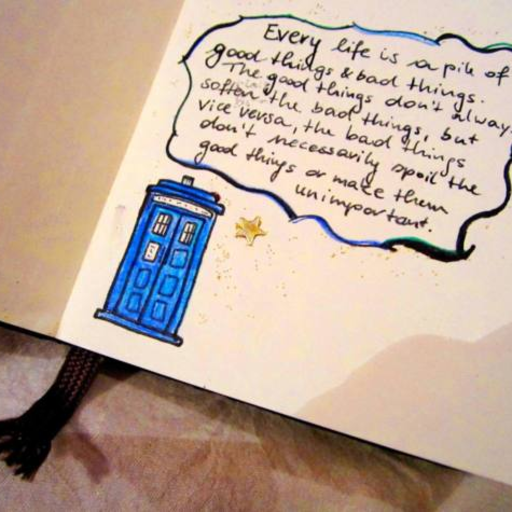 Every life is a pile of
good things & bad things.
The good things don't always
soften the bad things, but
vice versa, the bad things
don't necessarily spoil the
good things or make them
unimportant.